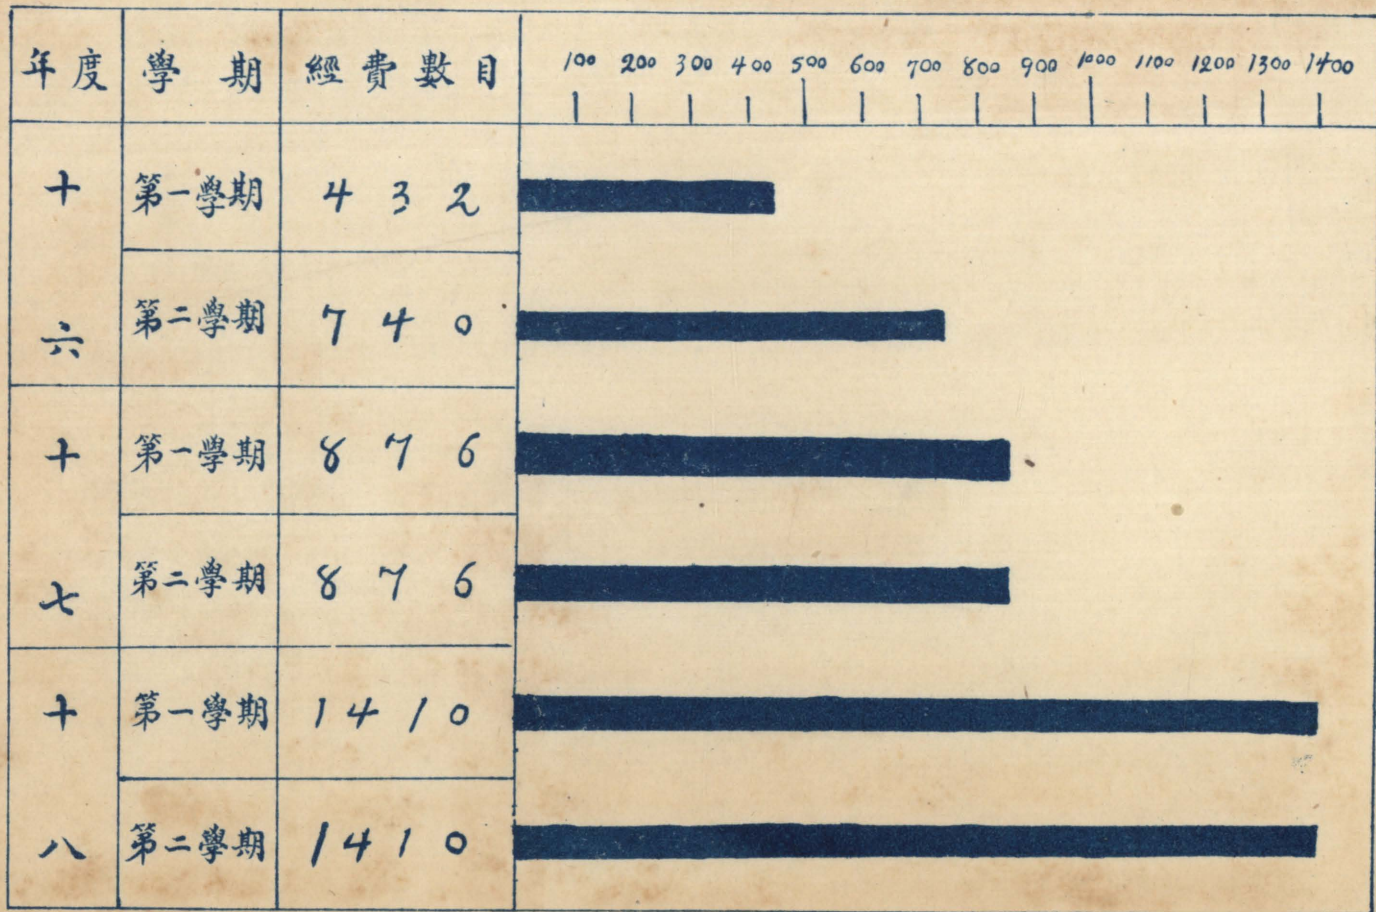 年度 學期 經費數目 100 200 300 400 500 600 700 800 900 1000 1100 1200 1300 1400
十六 第一學期 432
第二學期 740
十七 第一學期 876
第二學期 876
十八 第一學期 1410
第二學期 1410